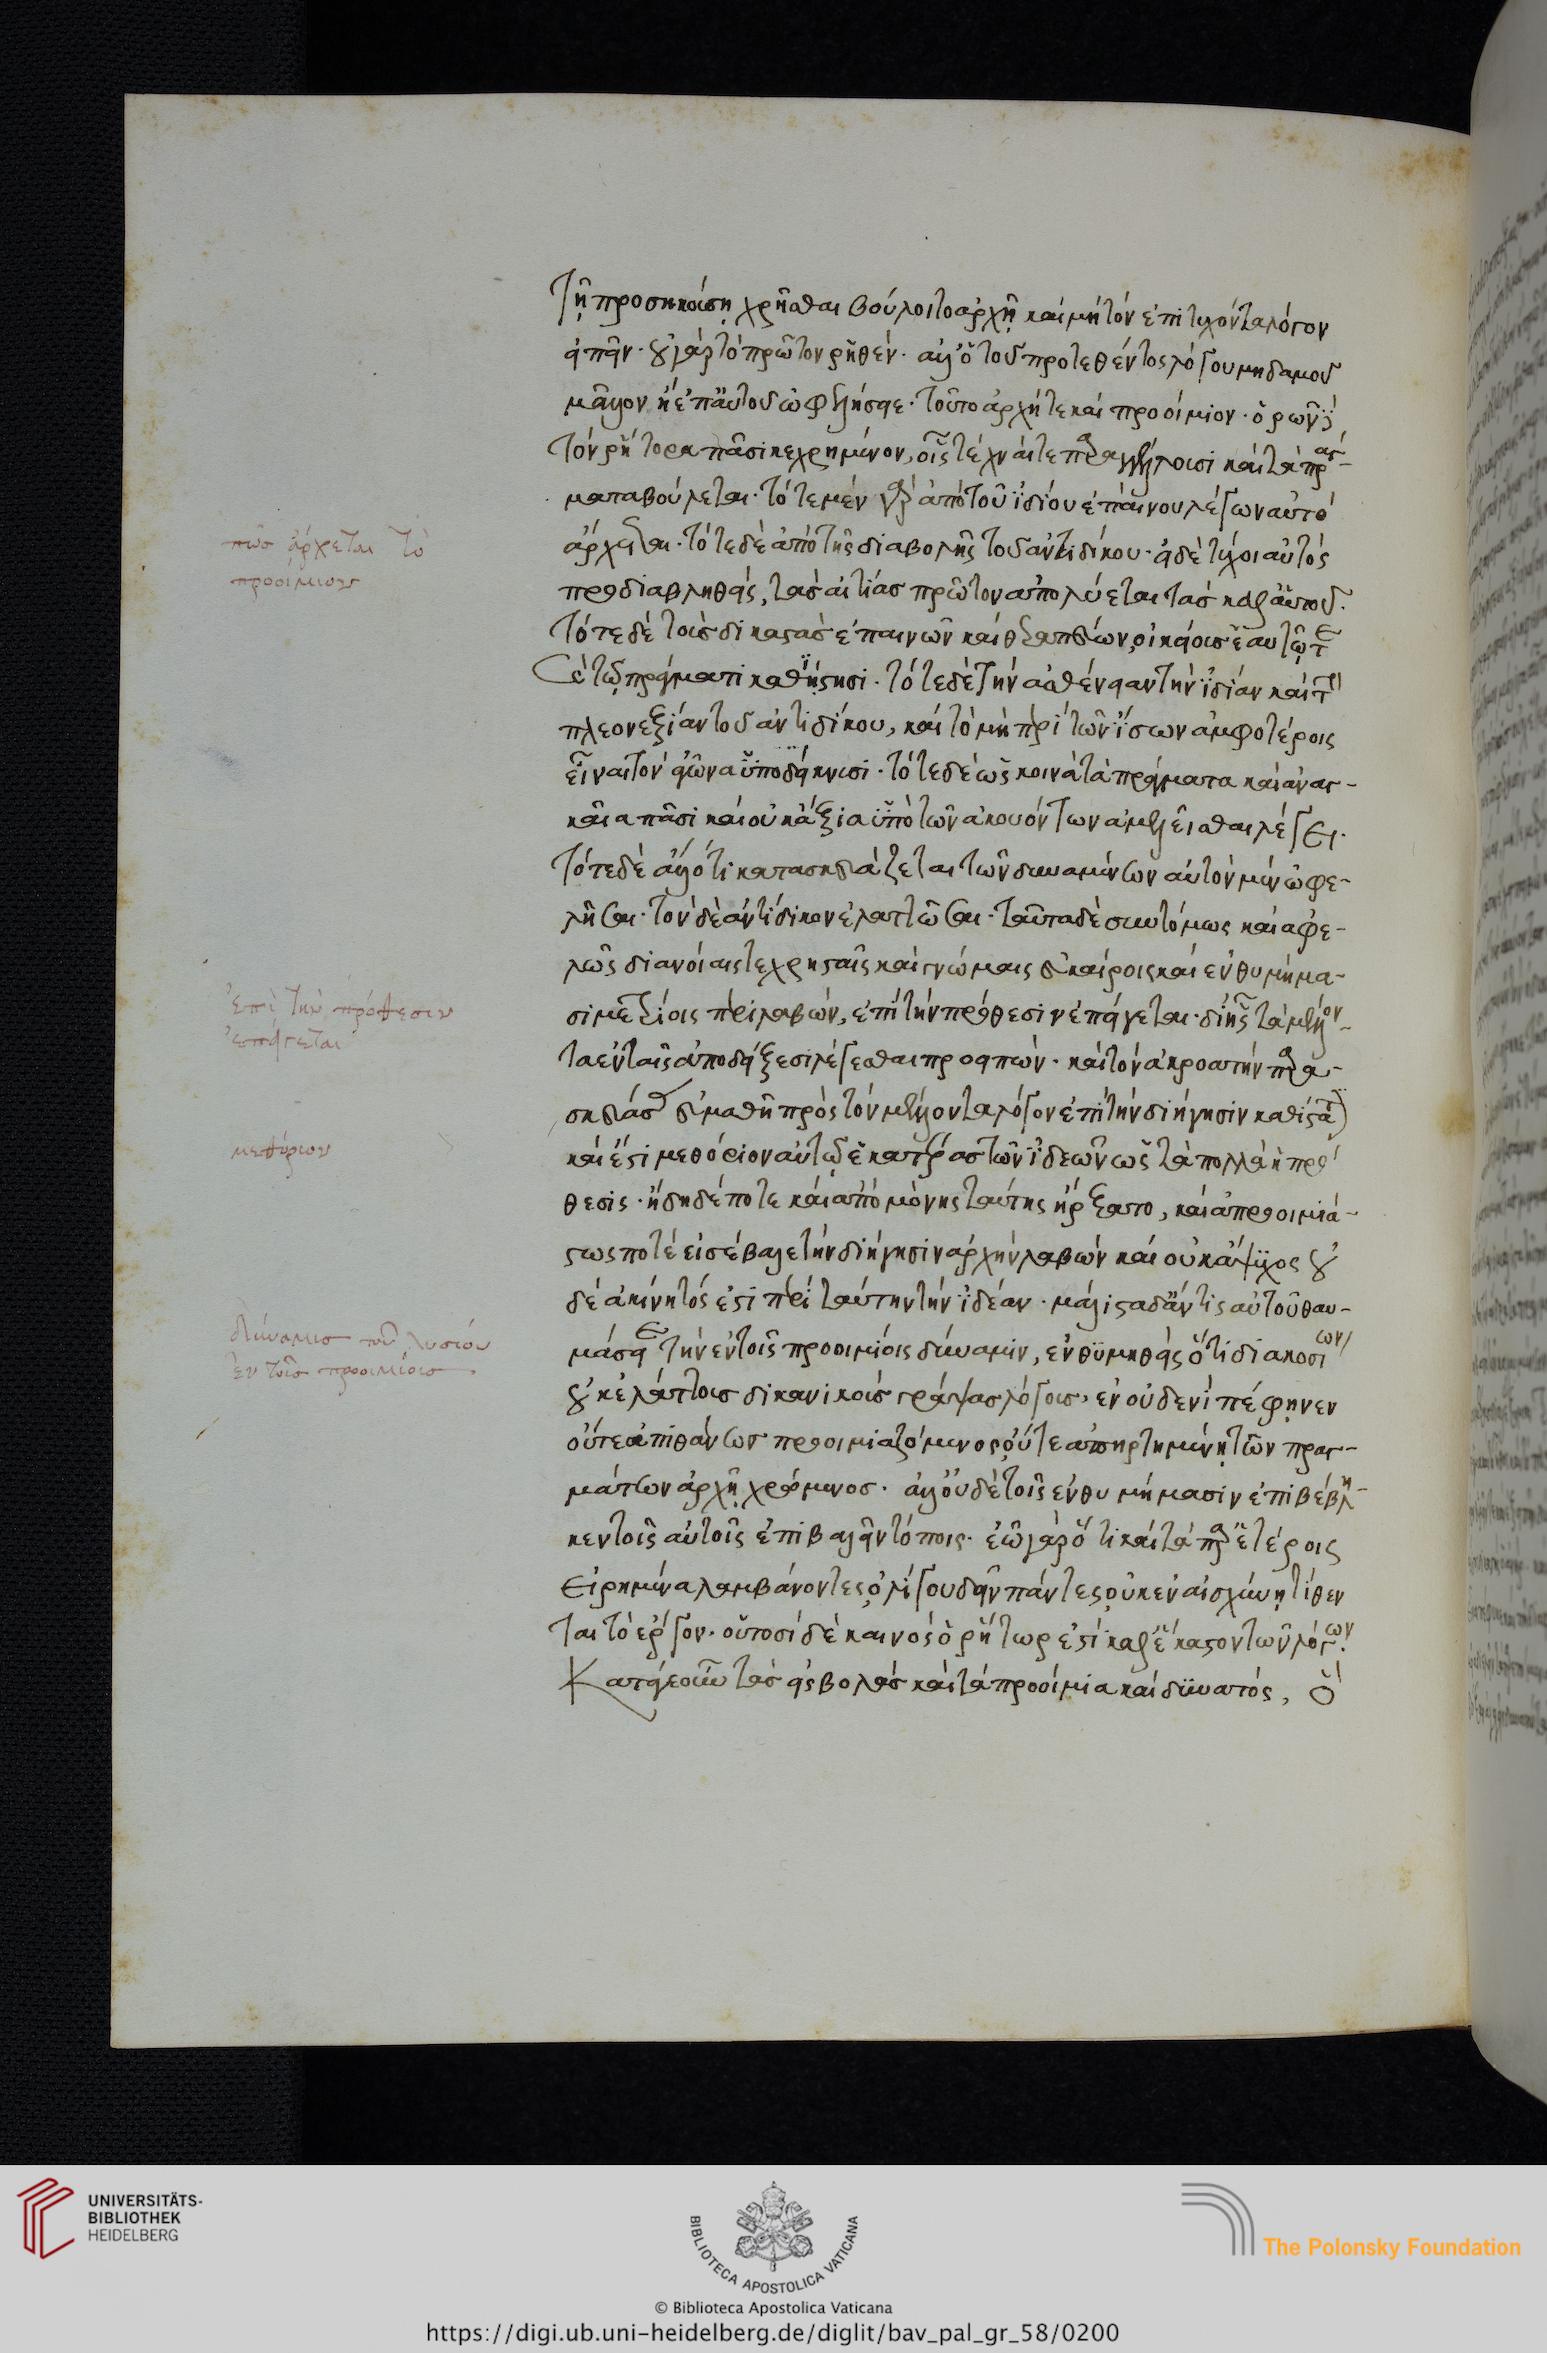 τῇ προσηκούσῃ χρῆσθαι βούλοιτο ἀρχῇ καὶ μὴ τὸν ἐπιτυχόντα λόγον
εἰπεῖν· οὐ γὰρ τὸ πρῶτον ῥηθέν· ἀλλ' ὃ τοῦ προτεθέντος λόγου μηδαμοῦ
μᾶλλον ἢ ἐπ' αὐτοῦ ὠφελήσειε· τοῦτο ἀρχή τε καὶ προοίμιον· ὁρῶ δὴ
τὸν ῥήτορα πᾶσι κεχρημένον, οἷς τέχναι τε παραγγέλλουσι καὶ τὰ πράγ-
ματα βούλεται· τότε μὲν γὰρ ἀπὸ τοῦ ἰδίου ἐπαίνου λέγων αὐτὸ
ἄρχεται· τότε δὲ ἀπὸ τῆς διαβολῆς τοῦ ἀντιδίκου· εἰ δὲ τύχοι αὐτὸς
προδιαβληθείς, τὰς αἰτίας πρῶτον ἀπολύεται τὰς καθ' αὑτοῦ.
τότε δὲ τοὺς δικαστὰς ἐπαινῶν καὶ θεραπεύων, οἰκείους ἑαυτῷ τε
καὶ τῷ πράγματι καθίστησι· τότε δὲ τὴν ἀσθένειαν τὴν ἰδίαν καὶ τὴν
πλεονεξίαν τοῦ ἀντιδίκου, καὶ τὸ μὴ περὶ τῶν ἴσων ἀμφοτέροις
εἶναι τὸν ἀγῶνα ὑποδείκνυσι· τότε δὲ ὡς κοινὰ τὰ πράγματα καὶ ἀναγ-
καῖα πᾶσι καὶ οὐκ ἄξια ὑπὸ τῶν ἀκουόντων ἀμελεῖσθαι λέγει·
τότε δὲ ἄλλό τι κατασκευάζεται τῶν δυναμένων αὐτὸν μὲν ὠφε-
λῆσαι· τὸν δὲ ἀντίδικον ἐλαττῶσαι· ταῦτα δὲ συντόμως καὶ ἀφε-
λῶς διανοίαις τε χρησταῖς καὶ γνώμαις εὐκαίροις καὶ ἐνθυμήμα-
σι μετρίοις περιλαβών, ἐπὶ τὴν πρόθεσιν ἐπείγεται· δι' ἧς τὰ μέλλον-
τα ἐν ταῖς ἀποδείξεσι λέγεσθαι προειπών· καὶ τὸν ἀκροατὴν παρα-
σκευάσας εὐμαθῆ πρὸς τὸν μέλλοντα λόγον ἐπὶ τὴν διήγησιν καθίσταται
καὶ ἔστι μεθόριον αὐτῷ ἑκατέρας τῶν ἰδεῶν ὡς τὰ πολλὰ ἡ πρό
θεσις· ἤδη δέ ποτε καὶ ἀπὸ μόνης ταύτης ἤρξατο, καὶ ἀπροοιμιά-
στως ποτὲ εἰσέβαλε τὴν διήγησιν ἀρχὴν λαβὼν καὶ οὐκ ἄψυχος οὐ
δὲ ἀκίνητός ἐστι περὶ ταύτην τὴν ἰδέαν· μάλιστα δ' ἄν τις αὐτοῦ θαυ-
μάσειε τὴν ἐν τοῖς προοιμίοις δύναμιν, ἐνθυμηθεὶς ὅτι διακοσίων
οὐκ ἐλάττους δικανικοὺς γράψας λόγους, ἐν οὐδενὶ πέφηνεν
οὔτε ἀπιθάνως προοιμιαζόμενος οὔτε ἀπηρτημένῃ τῶν πραγ-
μάτων ἀρχῇ χρώμενος· ἀλλ' οὐδὲ τοῖς ἐνθυμήμασιν ἐπιβέβλη-
κεν τοῖς αὐτοῖς ἐπιβαλεῖν τόποις· ἐῶ γὰρ ὅτι καὶ τὰ παρ' ἑτέροις
εἰρημένα λαμβάνοντες ὀλίγου δεῖν πάντες οὐκ ἐν αἰσχύνῃ τίθεν
ται τὸ ἔργον· οὑτοσὶ δὲ καινὸς ὁ ῥήτωρ ἐστὶ καθ' ἕκαστον τῶν λόγων
κατά γε οὖν τὰς εἰσβολὰς καὶ τὰ προοίμια καὶ δυνατός, ὃ
πῶς ἄρχεται τὸ
προοίμιον
ἐπὶ τὴν πρόθεσιν
ἐπείγεται
μεθόριον
δύναμις τοῦ λυσίου
ἐν τοῖς προοιμίοις
UNIVERSITÄTS-
BIBLIOTHEK
HEIDELBERG
BIBLIOTECA APOSTOLICA VATICANA
The Polonsky Foundation
© Biblioteca Apostolica Vaticana
https://digi.ub.uni-heidelberg.de/diglit/bav_pal_gr_58/0200